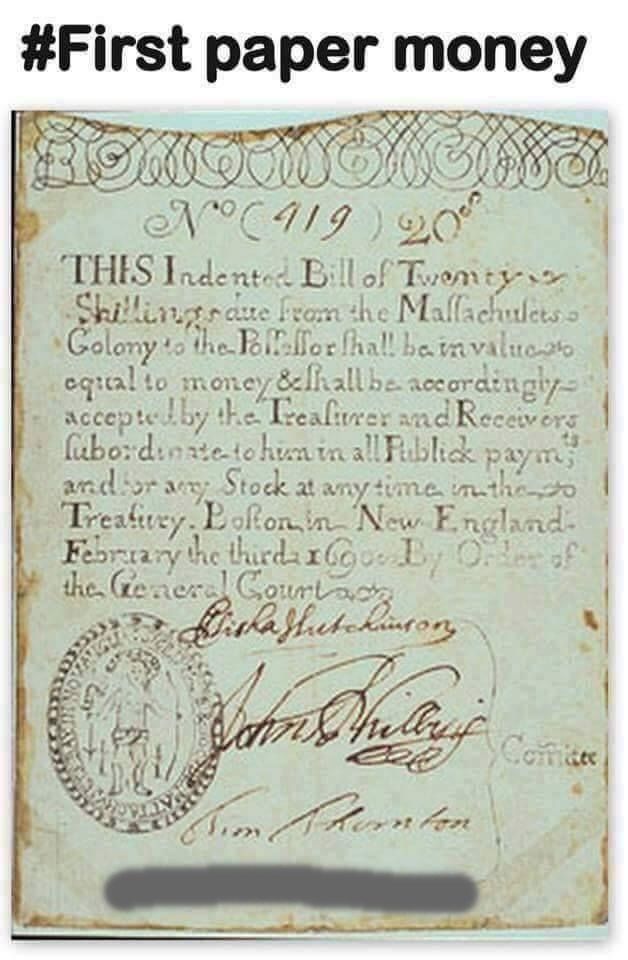 #First paper money
No (419) 20s
THIS Indented Bill of Twenty
Shillings due from the Massachusets
Colony to the Possessor shall be in value
equal to money & shall be accordingly
accepted by the Treasurer and Receivers
subordinate to him in all Publick paymts
and for any Stock at any time in the
Treasury. Boston in New England
February the third 1690 By Order of
the General Court
Elisha Hutchinson
John Phillips
Comittee
Tim Thornton